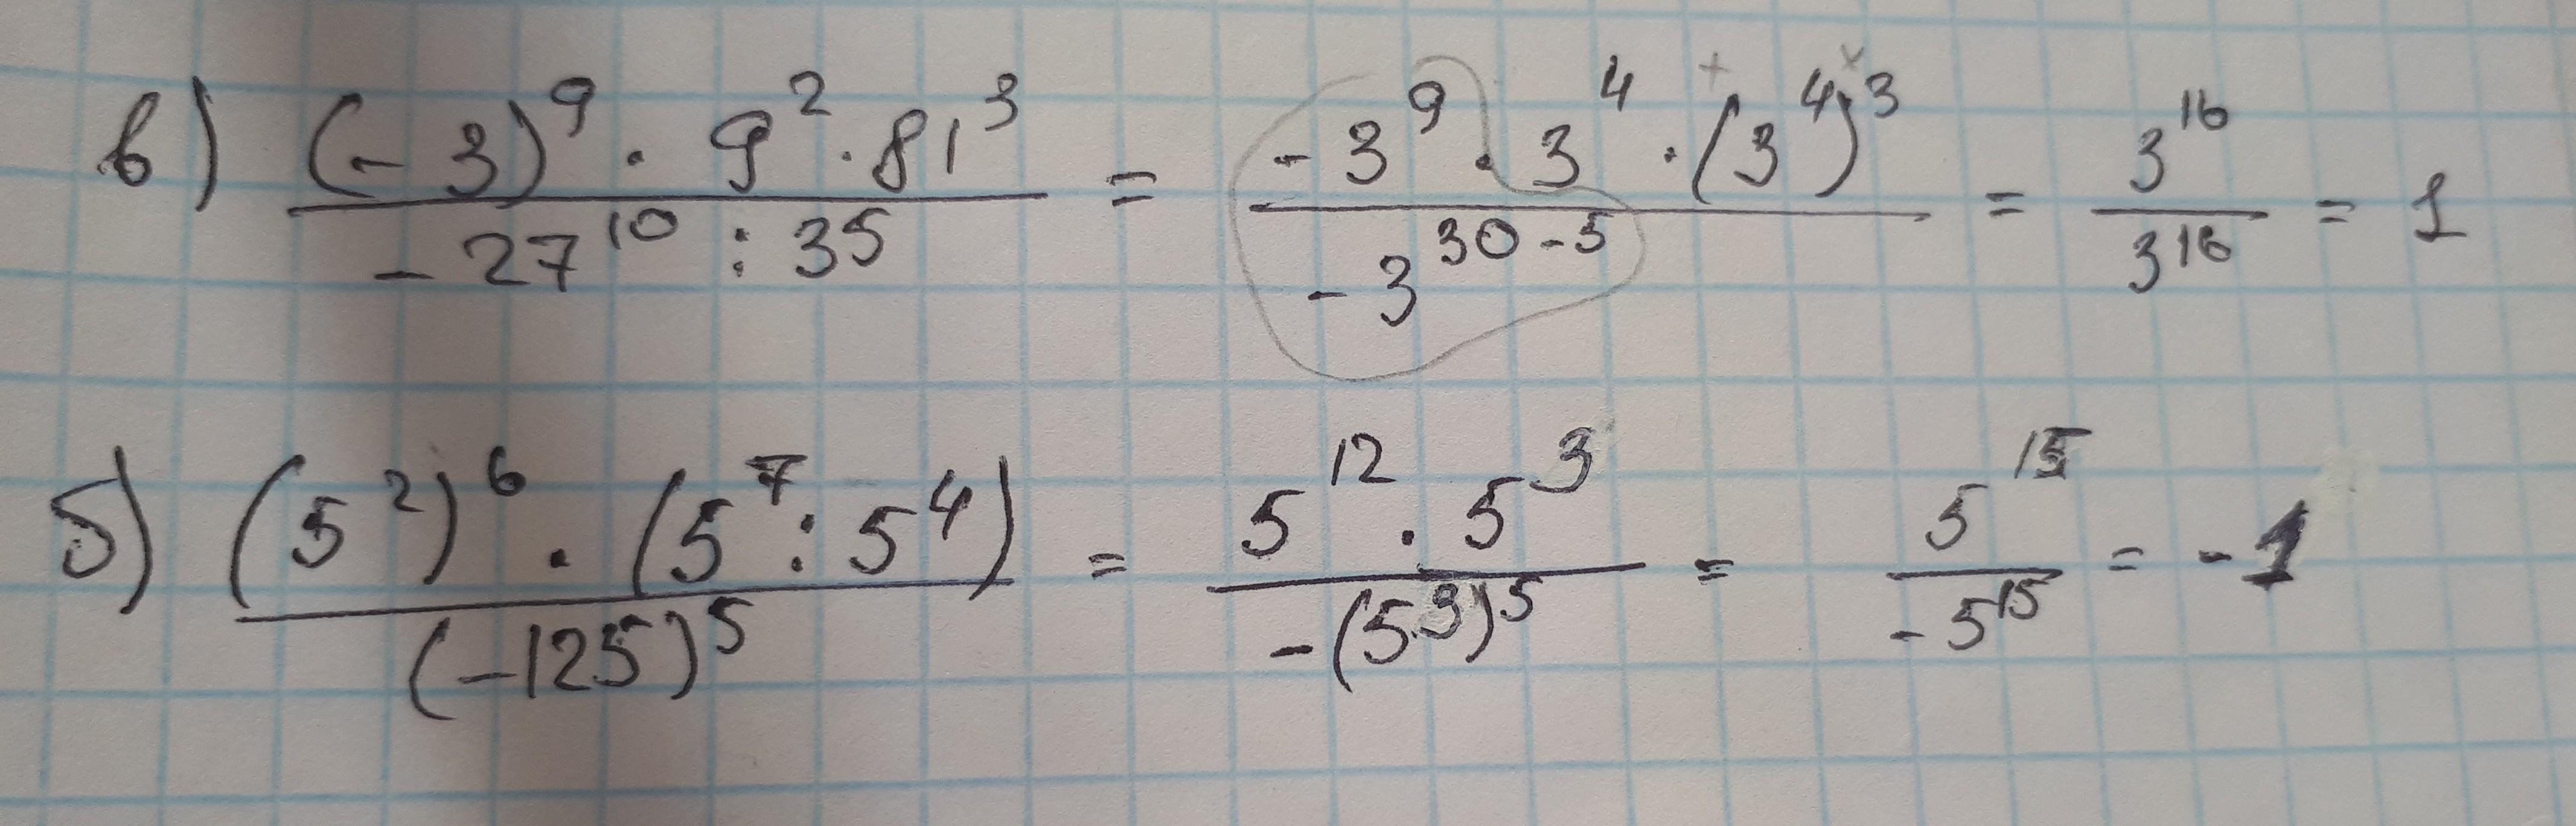 в) ((-3)^9 · 9^2 · 81^3)/(-27^10 : 35) = (-3^9 · 3^4 · (3^4)^3)/(-3^(30-5)) = 3^16/3^16 = 1
+ ×
б) ((5^2)^6 · (5^7 : 5^4))/((-125)^5) = (5^12 · 5^3)/(-(5^3)^5) = 5^15/(-5^15) = -1